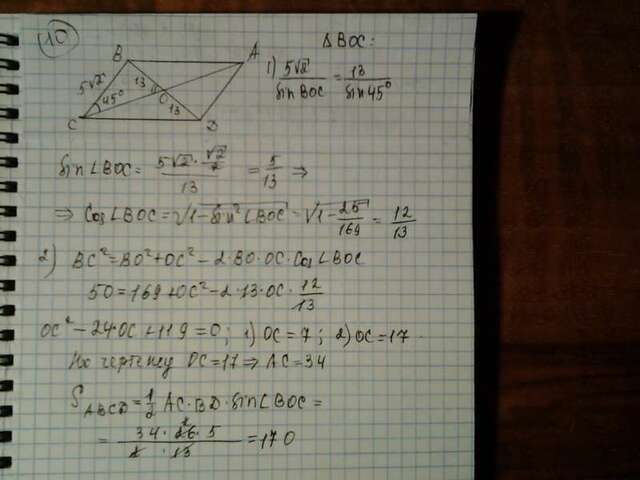 10
B
A
5√2
13
45°
O
13
C
D
Δ BOC:
1) 5√2 / sin BOC = 13 / sin 45°
sin ∠BOC = 5√2 · √2/2 / 13 = 5/13 ⇒
⇒ Cos ∠BOC = √1 − sin² ∠BOC = √1 − 25/169 = 12/13
2) BC² = BO² + OC² − 2·BO·OC·Cos ∠BOC
50 = 169 + OC² − 2·13·OC · 12/13
OC² − 24·OC + 119 = 0; 1) OC = 7; 2) OC = 17
По чертежу OC = 17 ⇒ AC = 34
S ABCD = 1/2 AC · BD · sin ∠BOC =
= 34 · 26 · 5 / 2 · 13 = 170